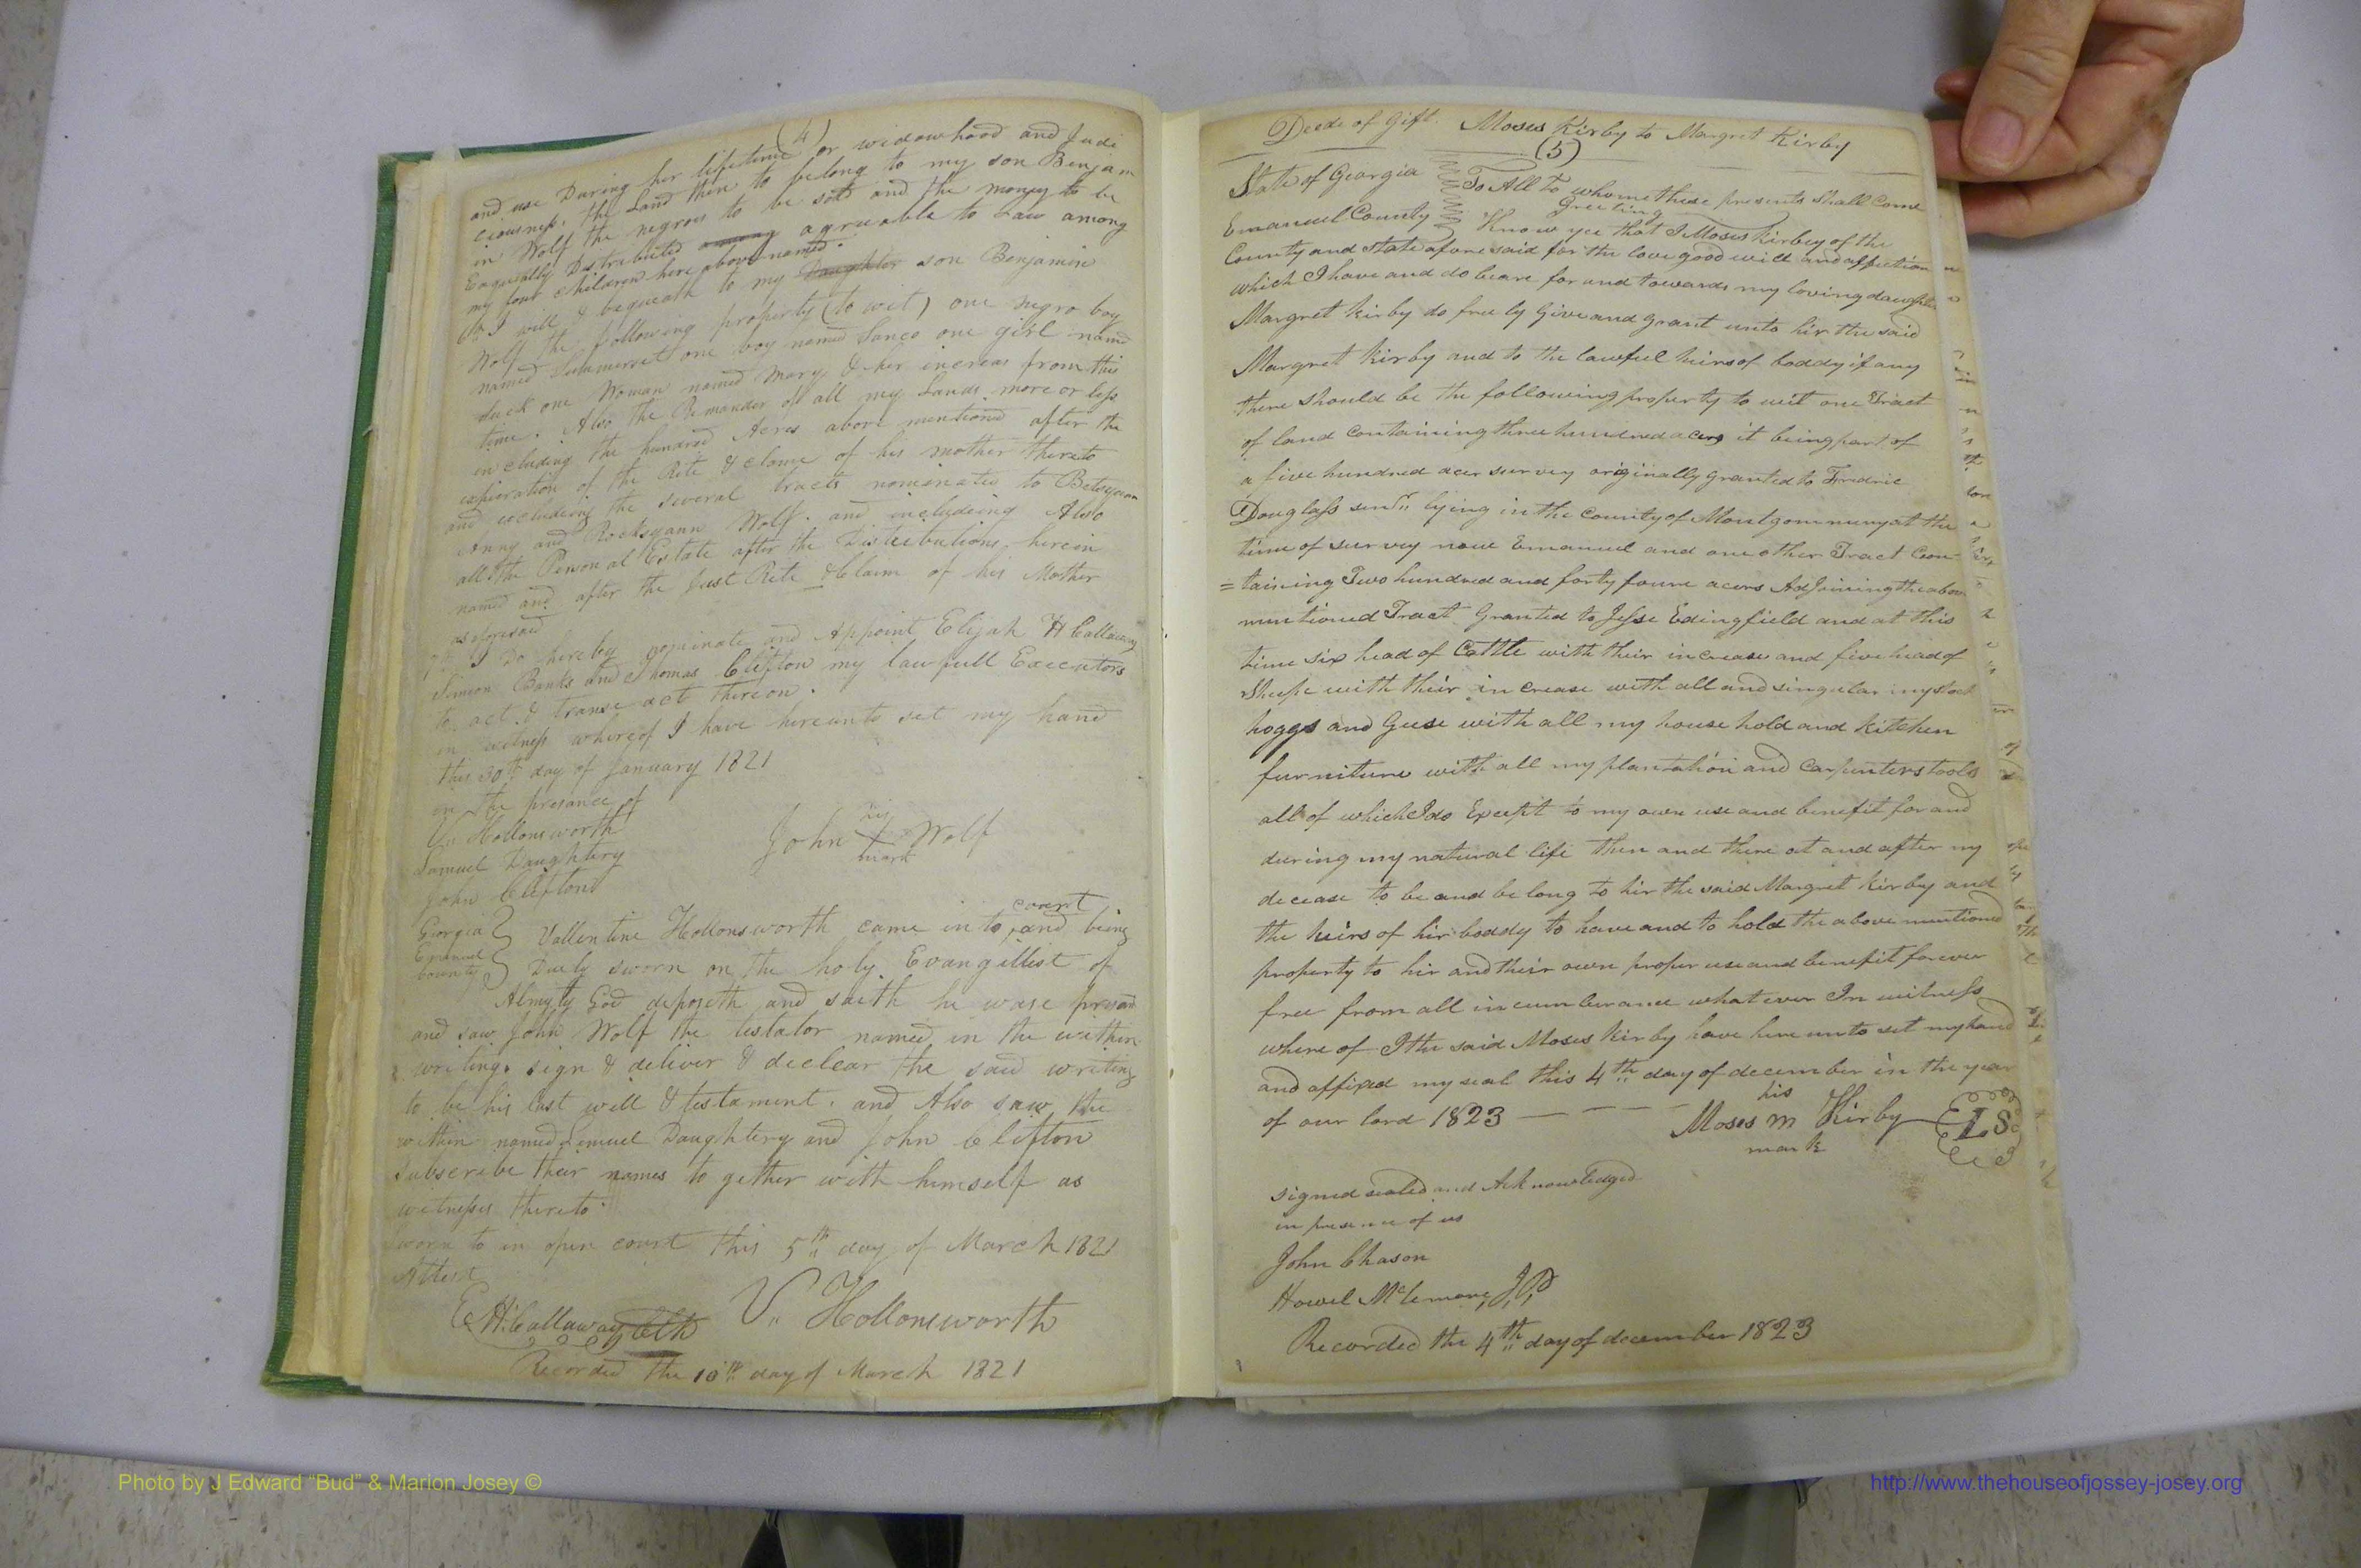 (4)
and use During her lifetime or widowhood and Judi
ciousness. the Land then to belong to my son Benjam
in Wolf the negroes to be sold and the money to be
Eaqually Distributed among agreeable to Law among
my four children here above named.
6th I will & bequeath to my Daughter son Benjamin
Wolf the following property (to wit) one negro boy
named Summerset one boy named Sanco one girl named
one Woman named Mary & her increas from this
time. Also the Remander of all my Lands more or less
including the hundred Acres above mentioned after the
expiration of the Rite & clame of his mother thereto
and excludeing the several tracts nominated to Betsyann
Anny and Rocksyann Wolf. and includeing Also
all the Personal Estate after the Distributions herein
named and after the Just Rite & Claim of his Mother
as aforesaid
7th I Do hereby nominate and Appoint Elijah H Callaway
Simeon Banks and Thomas Clifton my lawfull Executors
to act & transe act thereon.
in witness whereof I have hereunto set my hand
this 30th day of January 1821
in the presance of
Vn Hollonsworth
Lemuel Daughtery
John Clifton
his
John X Wolf
mark
Georgia
Emanuel
County
Vallentine Hollonsworth came in to court and being
Duely sworn on the holy Evangillist of
Almyty God deposeth and saith he wase presant
and saw John Wolf the testator named in the within
writing. sign & deliver & declear the said writing
to be his last will & testament. and Also saw the
within named Lemuel Daughtery and John Clifton
subscribe their names to gether with himself as
witnesses thereto
sworn to in open court this 5th day of March 1821
Attest
E H Callaway Clk
V. Hollonsworth
Recorded the 10th day of March 1821
Deede of Gift. Moses Kirby to Margret Kirby
(5)
State of Georgia To All to whome these presents Shall Come
Greeting
Emanuel County Know yee that I Moses Kirbey of the
County and state afore said for the love good will and affection
which I have and do beare for and towards my loving daughter
Margret Kirby do free ly Give and grant unto hir the said
Margret Kirby and to the lawfuel heirs of boddy if any
there should be the following property to wit one Tract
of land containing three hundred acers it being part of
a five hundred acer survey originally granted to Fredric
Douglass senr lying in the County of Montgommery at the
time of survey now Emanuel and one other Tract Con-
=taining Two hundred and forty foure acers AdJoining the above
mentioned Tract Granted to Jesse Edingfield and at this
time six head of Cattle with their increase and five head of
Sheepe with their in crease with all and singular my stock
hoggs and Geese with all my house hold and kitchen
furniture with all my plantation and Carpenters tools
all of which I do Except to my own use and benefit for and
during my natural life then and there at and after my
decease to be and be long to hir the said Margret Kirby and
the heirs of hir boddy to have and to hold the above mentioned
property to hir and their own proper use and benefit forever
free from all incumberance whatever In witness
where of I the said Moses Kirby have here unto set my hand
and affixed my seal this 4th day of december in the year
of our lord 1823
his
Moses m Kirby LS
mark
signed sealed and Acknowledged
in presence of us
John Chason
Howel McLemore, J,P,
Recorded the 4th day of december 1823
Photo by J Edward “Bud” & Marion Josey ©
http://www.thehouseofjossey-josey.org